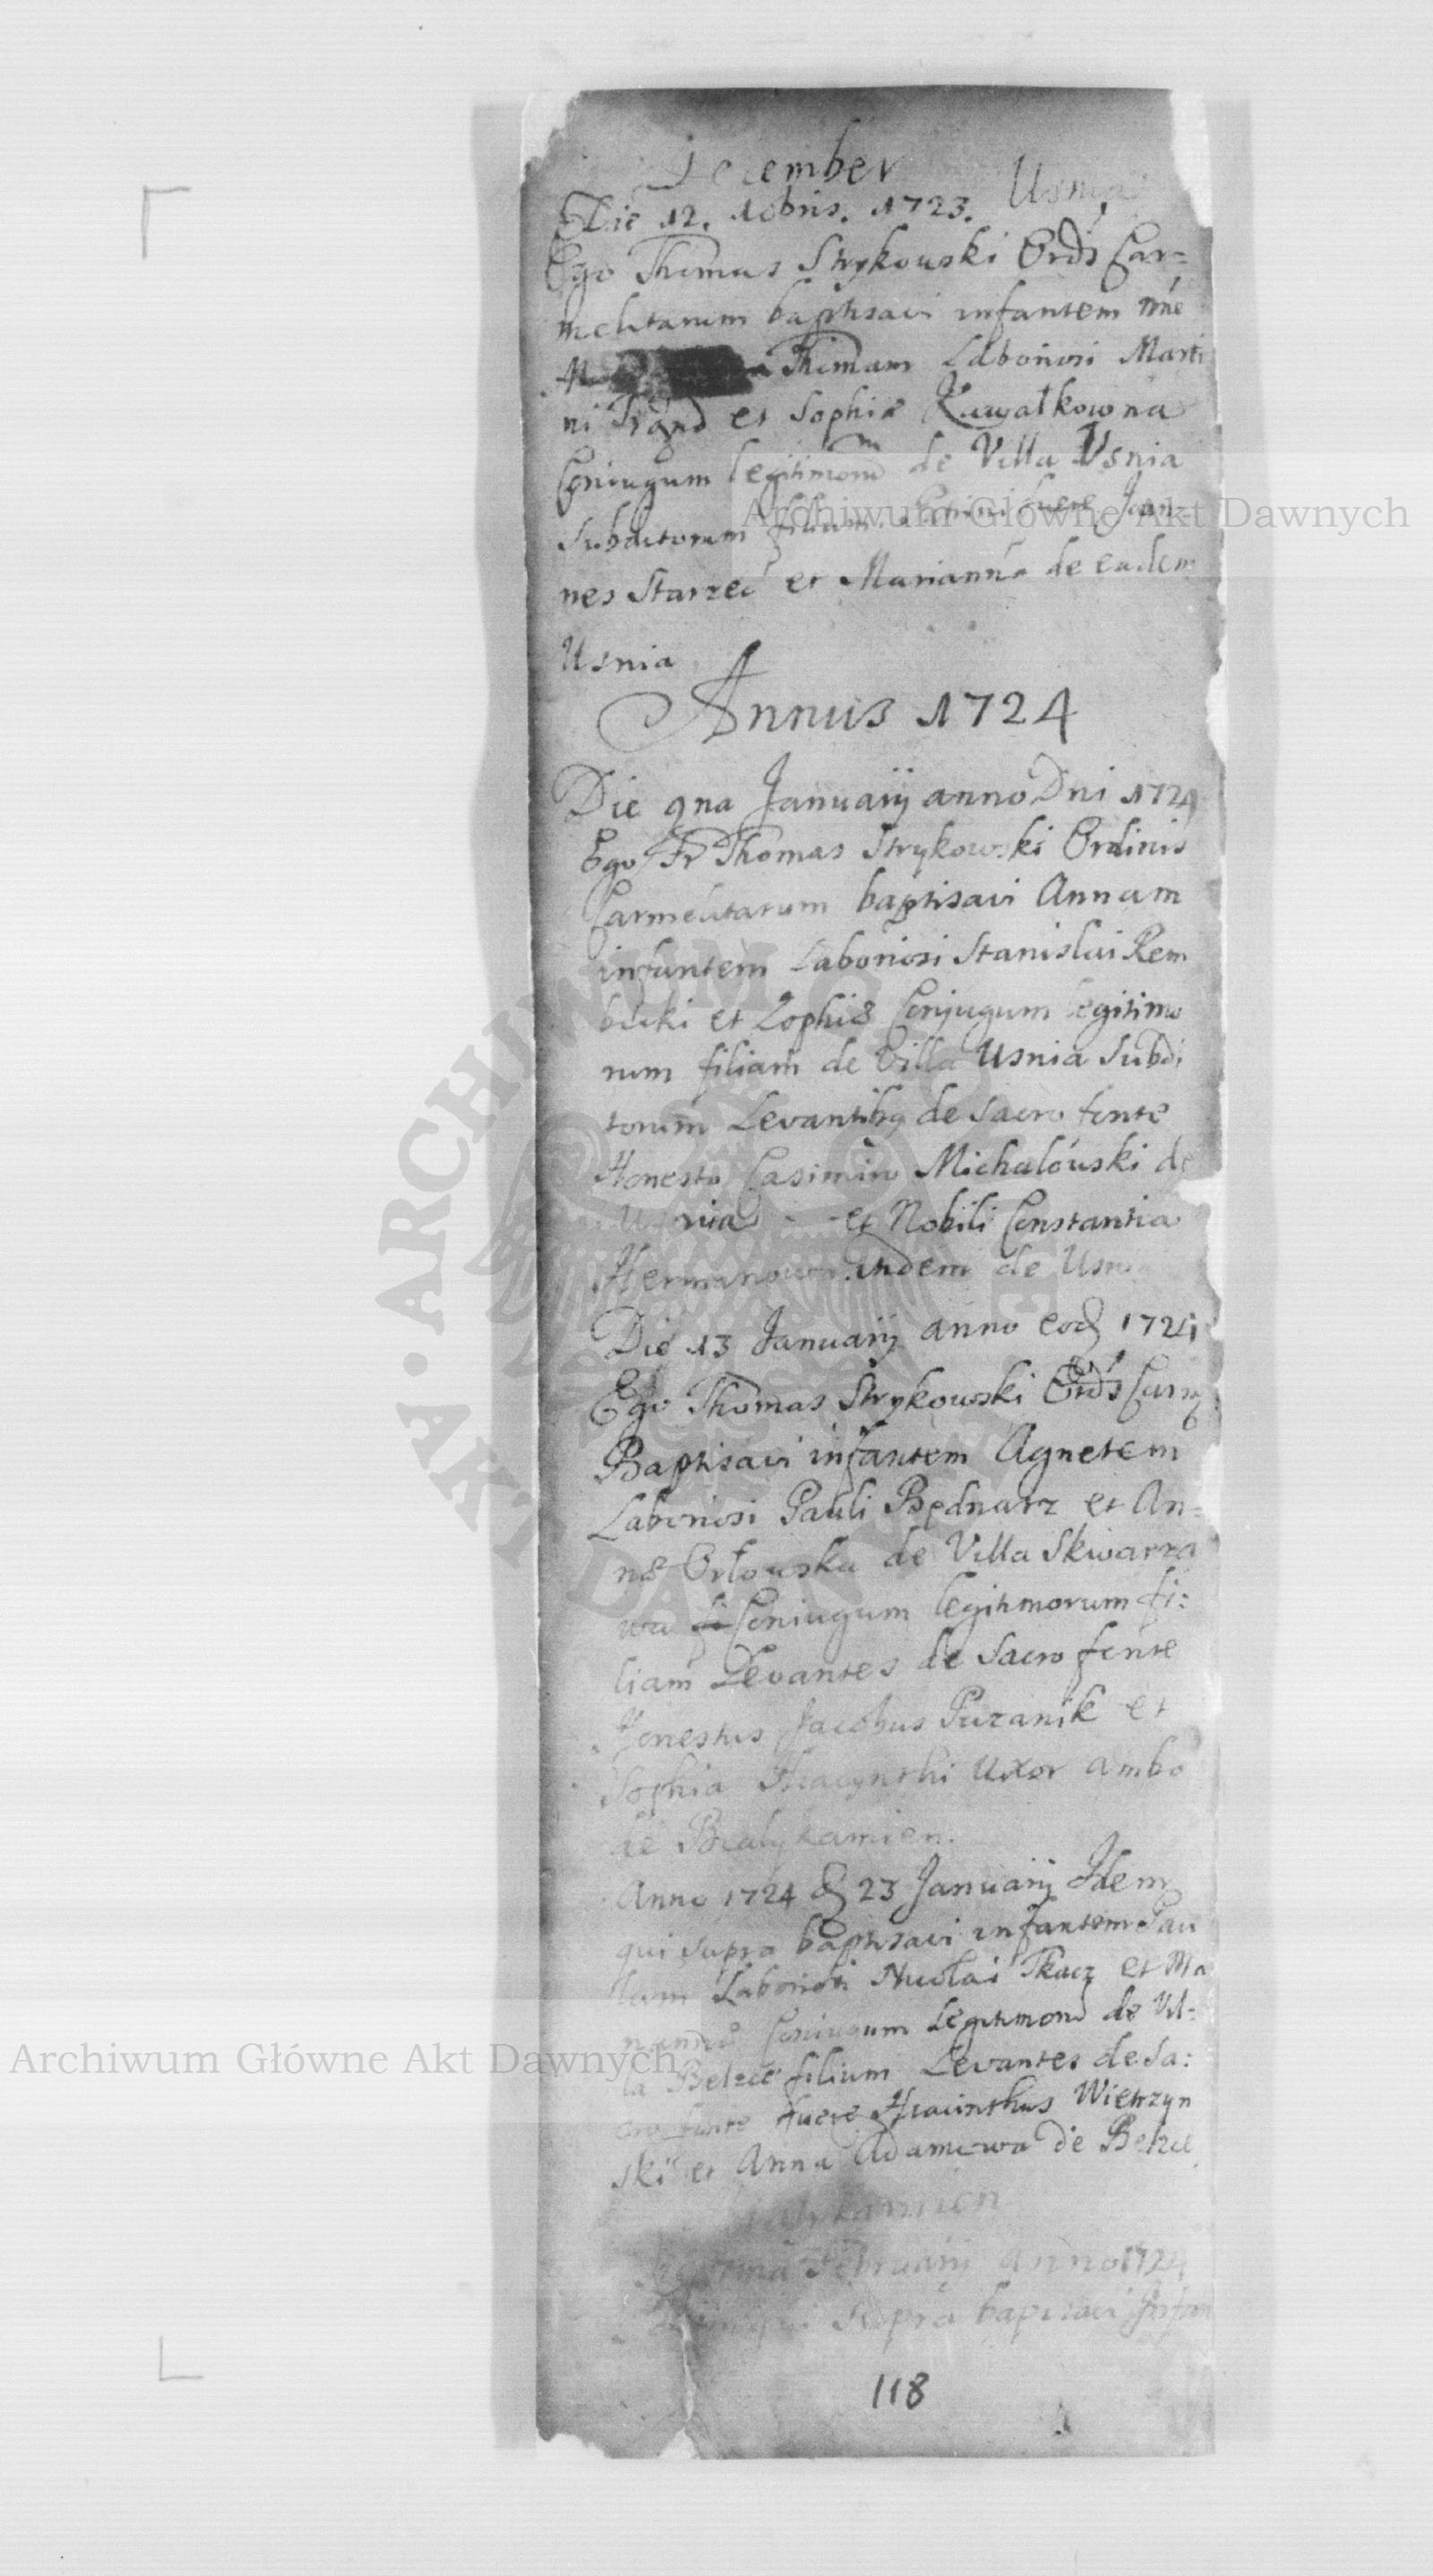 December
Usnia
Die 12. 10bris. 1723.
Ego Thomas Strykowski Ordis Car=
melitarum baptisavi infantem nne
Thomam Laboriosi Marti
ni et Sophiæ Kuwałkowna
Coniugum legitimorum de Villa Usnia
Subditorum filium. Patrini fuere Joan=
nes Starzec et Marianna de eadem
Usnia
Annus 1724
Die 9na Januarij anno Dni 1724
Ego Fr Thomas Strykowski Ordinis
Carmelitarum baptisavi Annam
infantem Laboriosi Stanislai Rem
bicki et Zophiæ Conjugum legitimo
rum filiam de Villa Usnia Subdi
torum Levantibq de Sacro fonte
Honesto Casimiro Michalowski de
Usnia - - et Nobili Constantia
de Usnia
Die 13 Januarij anno eod 1724
Ego Thomas Strykowski Ordis Carm
Baptisavi infantem Agnetem
Laboriosi Pauli Bednarz et An=
næ Orłowska de Villa Skwarza
wa fi Coniugum legitimorum fi:
liam Levantes de Sacro fonte
Honestus Jacobus Puzanik et
Sophia Hiacynthi Uxor ambo
de Bialykamien.
Anno 1724 d 23 Januarij Idem
qui supra baptisavi infantem Pau
lum Laboriosi Nicolai Tkacz et Ma
rianna Coniugum Legitimorum de Vil=
la Belzec filium Levantes de Sa:
cro fonte fuere Hiacinthus Wietrzyn
ski et Anna Adamowa de Belzec
Bialykamien
Februarij Anno 1724
qui Supra baptisavi Infan
118
Archiwum Główne Akt Dawnych
Archiwum Główne Akt Dawnych
ARCHIWUM GŁÓWNE • AKT DAWNYCH •